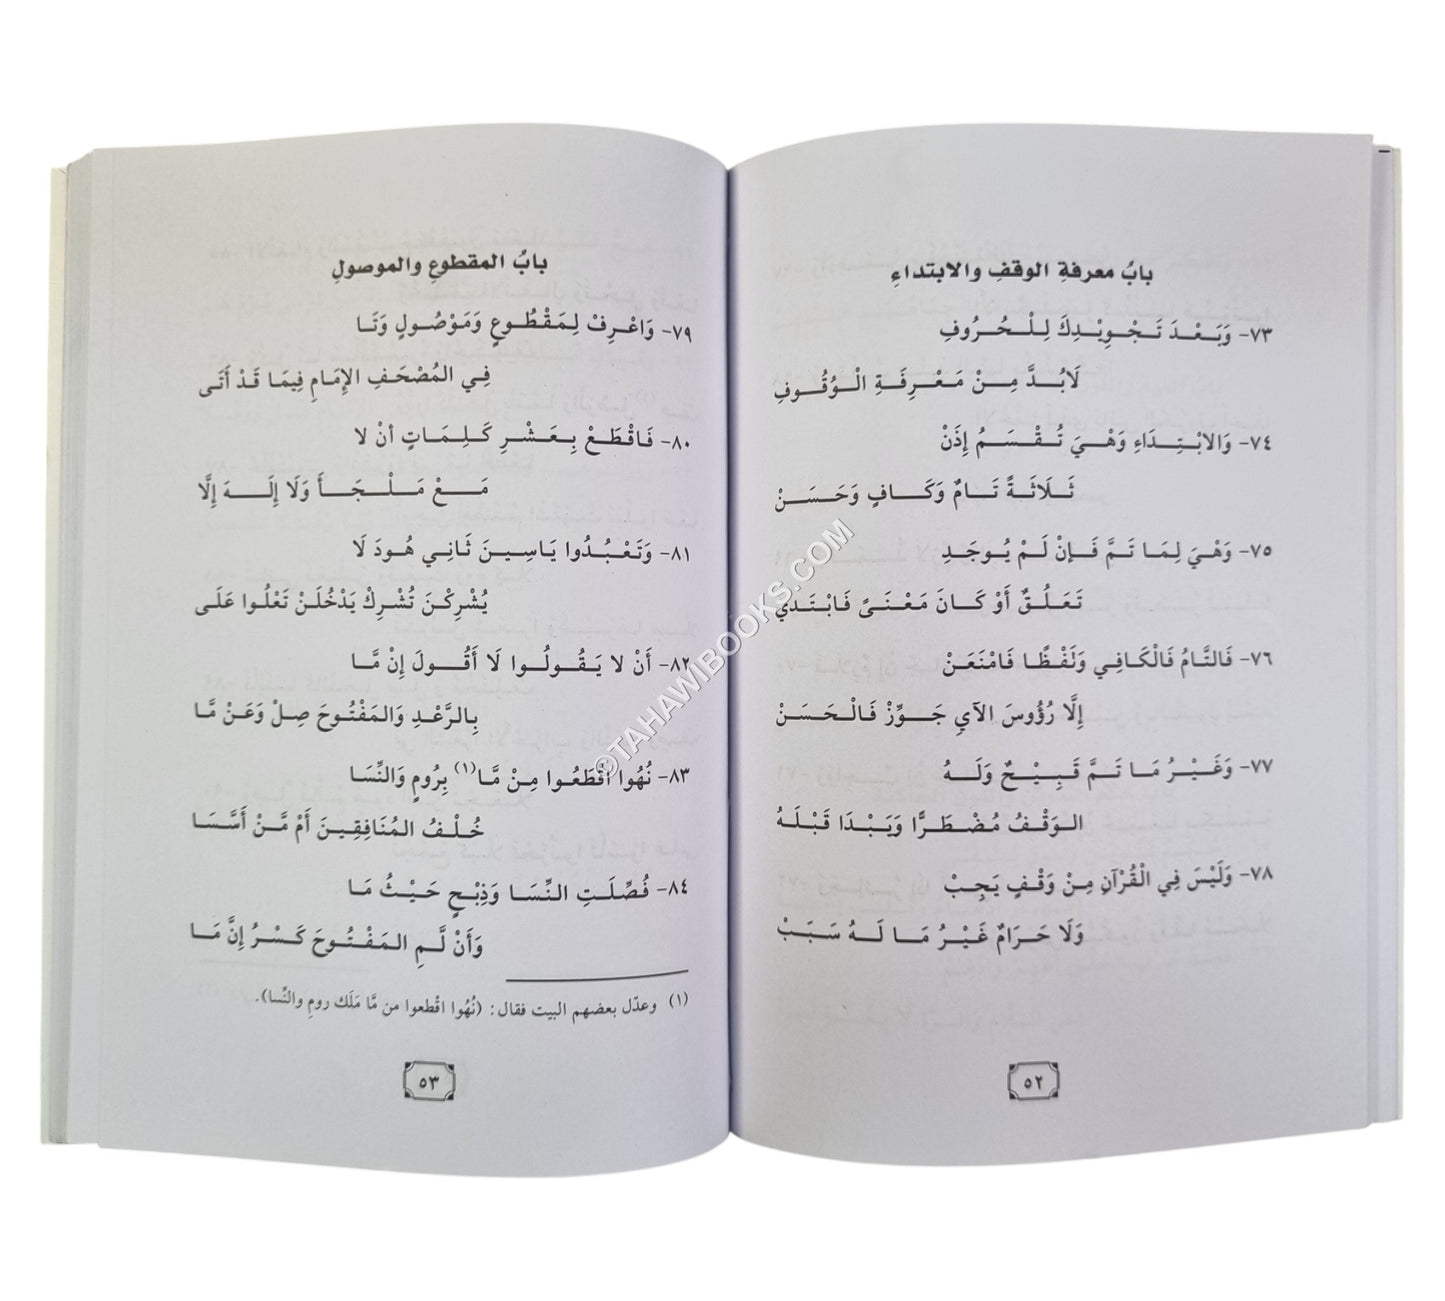 بابُ معرفةِ الوقفِ والابتداءِ
٧٣- وَبَعْدَ تَجْوِيْدِكَ لِلْحُرُوفِ
لَابُدَّ مِنْ مَعْرِفَةِ الْوُقُوفِ
٧٤- وَالابْتِدَاءِ وَهْيَ تُقْسَمُ إِذَنْ
ثَلَاثَةً تَامٌ وَكَافٍ وَحَسَنْ
٧٥- وَهْيَ لِمَا تَمَّ فَإِنْ لَمْ يُوجَدِ
تَعَلُقٌ أَوْ كَانَ مَعْنَىً فَابْتَدي
٧٦- فَالتَّامُ فَالْكَافِي وَلَفْظًا فَامْنَعَنْ
إِلَّا رُؤُوسَ الآيِ جَوِّزْ فَالْحَسَنْ
٧٧- وَغَيْرُ مَا تَمَّ قَبِيْحٌ وَلَهُ
الوَقْفُ مُضْطَرًّا وَيَبْدَا قَبْلَهُ
٧٨- وَلَيْسَ فِي الْقُرْآنِ مِنْ وَقْفٍ يَجِبْ
وَلَا حَرَامٌ غَيْرُ مَا لَهُ سَبَبْ
٥٢
بابُ المقطوعِ والموصولِ
٧٩- وَاعْرِفْ لِمَقْطُوعٍ وَمَوْصُولٍ وَتَا
فِي المُصْحَفِ الإِمَامِ فِيمَا قَدْ أَتَى
٨٠- فَاقْطَعْ بِعَشْرِ كَلِمَاتٍ أنْ لا
مَعْ مَلْجَأَ وَلَا إِلَهَ إِلَّا
٨١- وَتَعْبُدُوا يَاسِينَ ثَانِي هُودَ لَا
يُشْرِكْنَ تُشْرِكْ يَدْخُلَنْ تَعْلُوا عَلَى
٨٢- أَنْ لا يَقُولُوا لَا أَقُولَ إِنْ مَّا
بِالرَّعْدِ وَالمَفْتُوحَ صِلْ وَعَنْ مَّا
٨٣- نُهُوا اقْطَعُوا مِنْ مَّا(١) بِرُومٍ وَالنِّسَا
خُلْفُ المُنَافِقِينَ أَمْ مَّنْ أَسَّسَا
٨٤- فُصِّلَتِ النِّسَا وَذِبْحٍ حَيْثُ مَا
وَأَنْ لَّمِ المَفْتُوحَ كَسْرُ إِنَّ مَا
(١) وعدّل بعضهم البيت فقال: (نُهُوا اقْطعوا من مَّا مَلَك رومِ والنِّسا).
٥٣
©TAHAWIBOOKS.COM